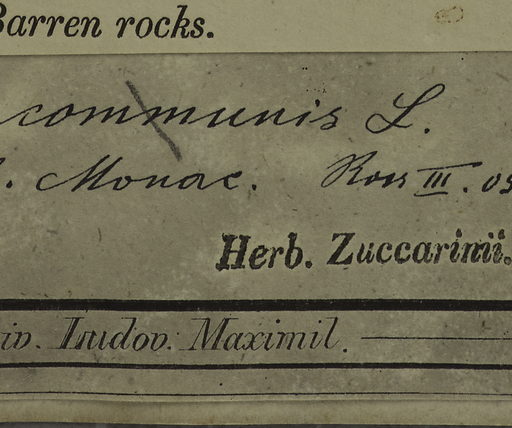 Barren rocks.
communis L.
. Monac. Ross III. 05
Herb. Zuccarinii.
iv. Ludov. Maximil.